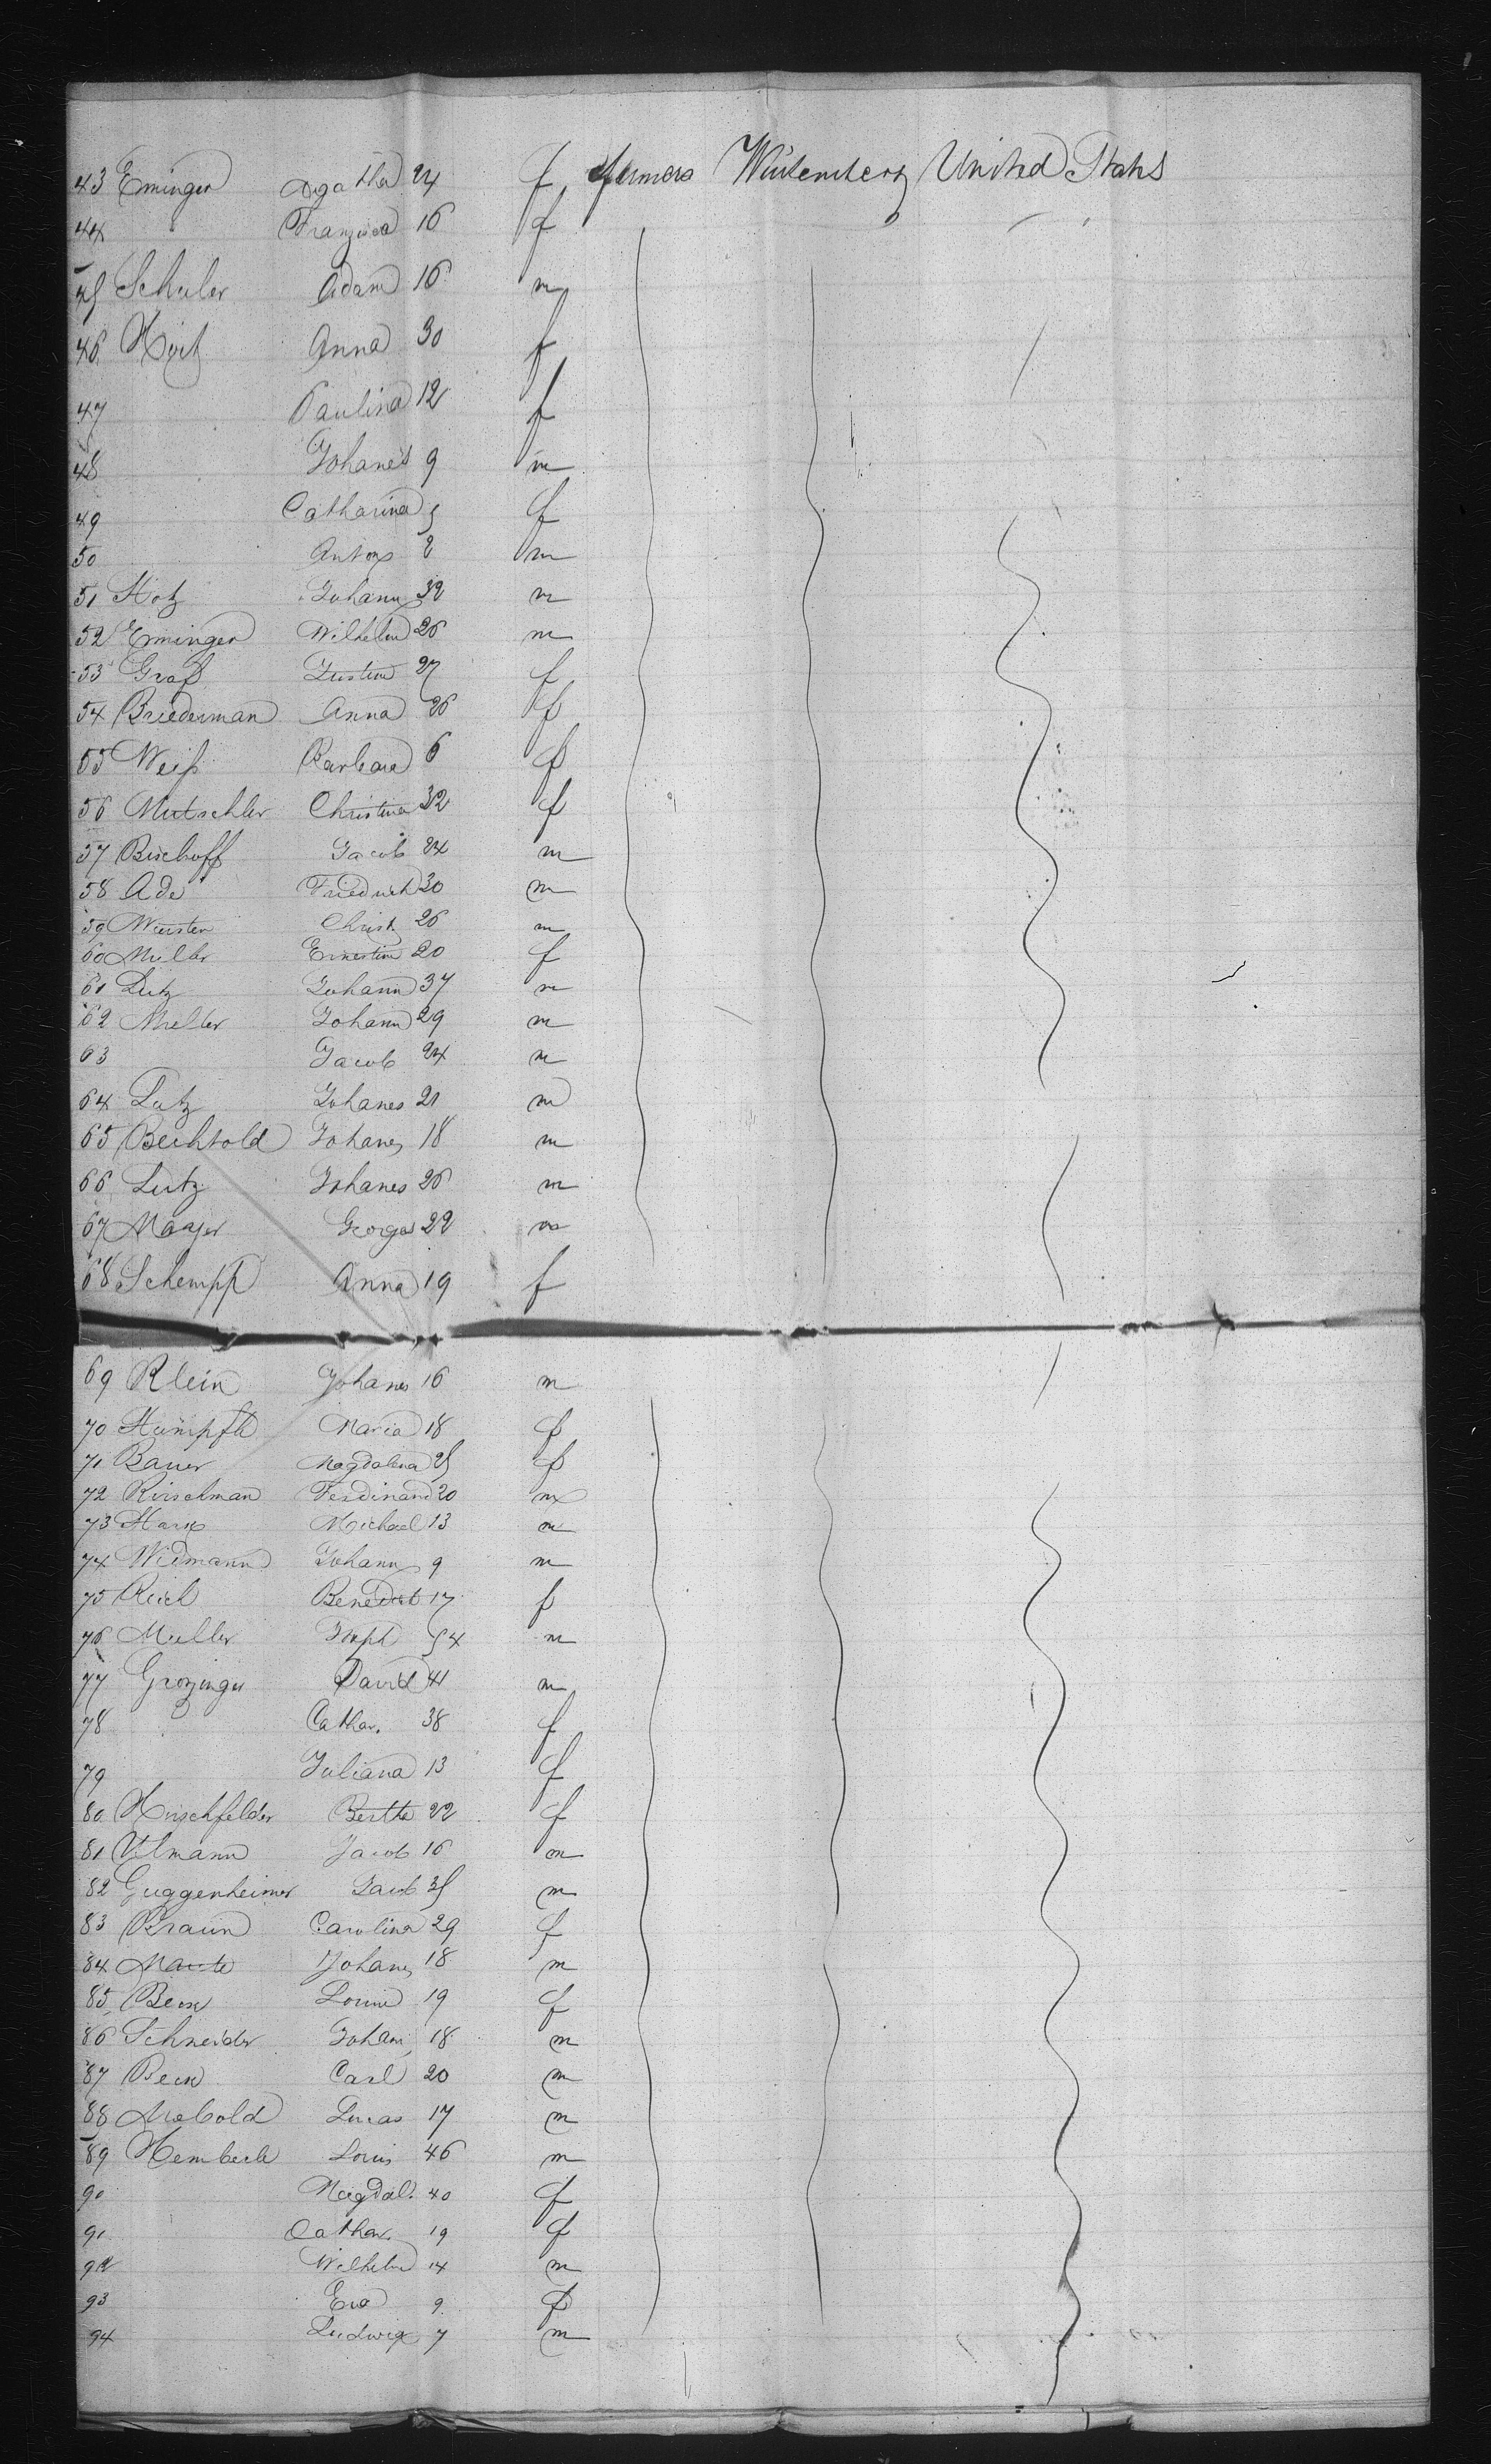 43 Eminger Agatha 24 f farmers Würtemberg United States
44 Franzisca 16 f
45 Schuler Adam 16 m
46 Anna 30 f
47 Paulina 12 f
48 Johanes 9 m
49 Catharina 5 f
50 Anton 2 m
51 Hotz Johann 32 m
52 Eminger Wilhelm 26 m
53 Graf Justine 27 f
54 Briederman Anna 26 f
55 Weiß Barbara 6 f
56 Mutschler Christina 32 f
57 Bischoff Jacob 24 m
58 Ade Friedrich 30 m
59 Wursten Christ. 26 m
60 Muller Ernestine 20 f
61 Lutz Johann 37 m
62 Muller Johann 29 m
63 Jacob 24 m
64 Lutz Johanes 21 m
65 Bechtold Johanes 18 m
66 Lutz Johanes 26 m
67 Maajer George 22 m
68 Schempp Anna 19 f
69 Klein Johanes 16 m
70 Maria 18 f
71 Bauer Magdalena 25 f
72 Kirschman Ferdinand 20 m
73 Michael 13 m
74 Widmann Johann 9 m
75 Reich Benedict 17 f
76 Muller Joseph 54 m
77 Grozinger David 41 m
78 Cathar. 38 f
79 Juliana 13 f
80 Hirschfelder Bertha 22 f
81 Ulmann Jacob 16 m
82 Guggenheimer Jacob 35 m
83 Braun Carolina 29 f
84 Maute Johanes 18 m
85 Beck Louise 19 f
86 Schneider Johann 18 m
87 Beck Carl 20 m
88 Mebold Lucas 17 m
89 Hembach Louis 46 m
90 Magdal. 40 f
91 Cathar. 19 f
92 Wilhelm 14 m
93 Eva 9 f
94 Ludwig 7 m